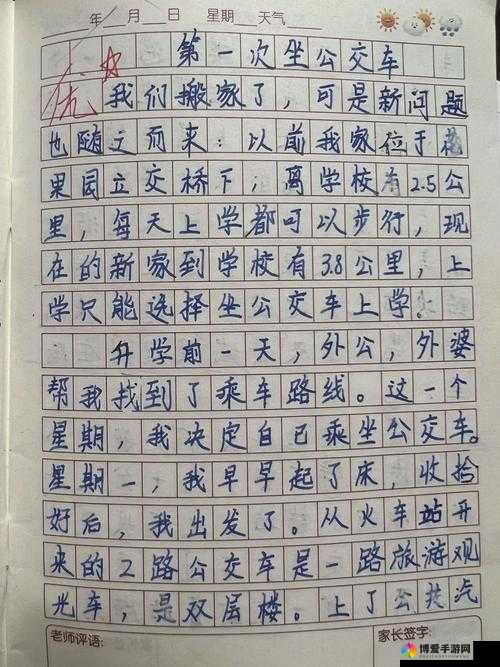 年 月 日 星期 天气
优
第一次坐公交车
我们搬家了，可是新问题
也随之而来：以前我家位于花
果园立交桥下，离学校有2.5公
里，每天上学都可以步行，现
在的新家到学校有3.8公里，上
学只能选择坐公交车上学。
升学前一天，外公，外婆
帮我找到了乘车路线。这一个
星期，我决定自己乘坐公交车。
星期一，我早早起了床，收拾
好后，我出发了。从火车站开
来的2路公交车是一路旅游观
光车，是双层楼。上了公共汽
老师评语： 家长签字：
博爱手游网